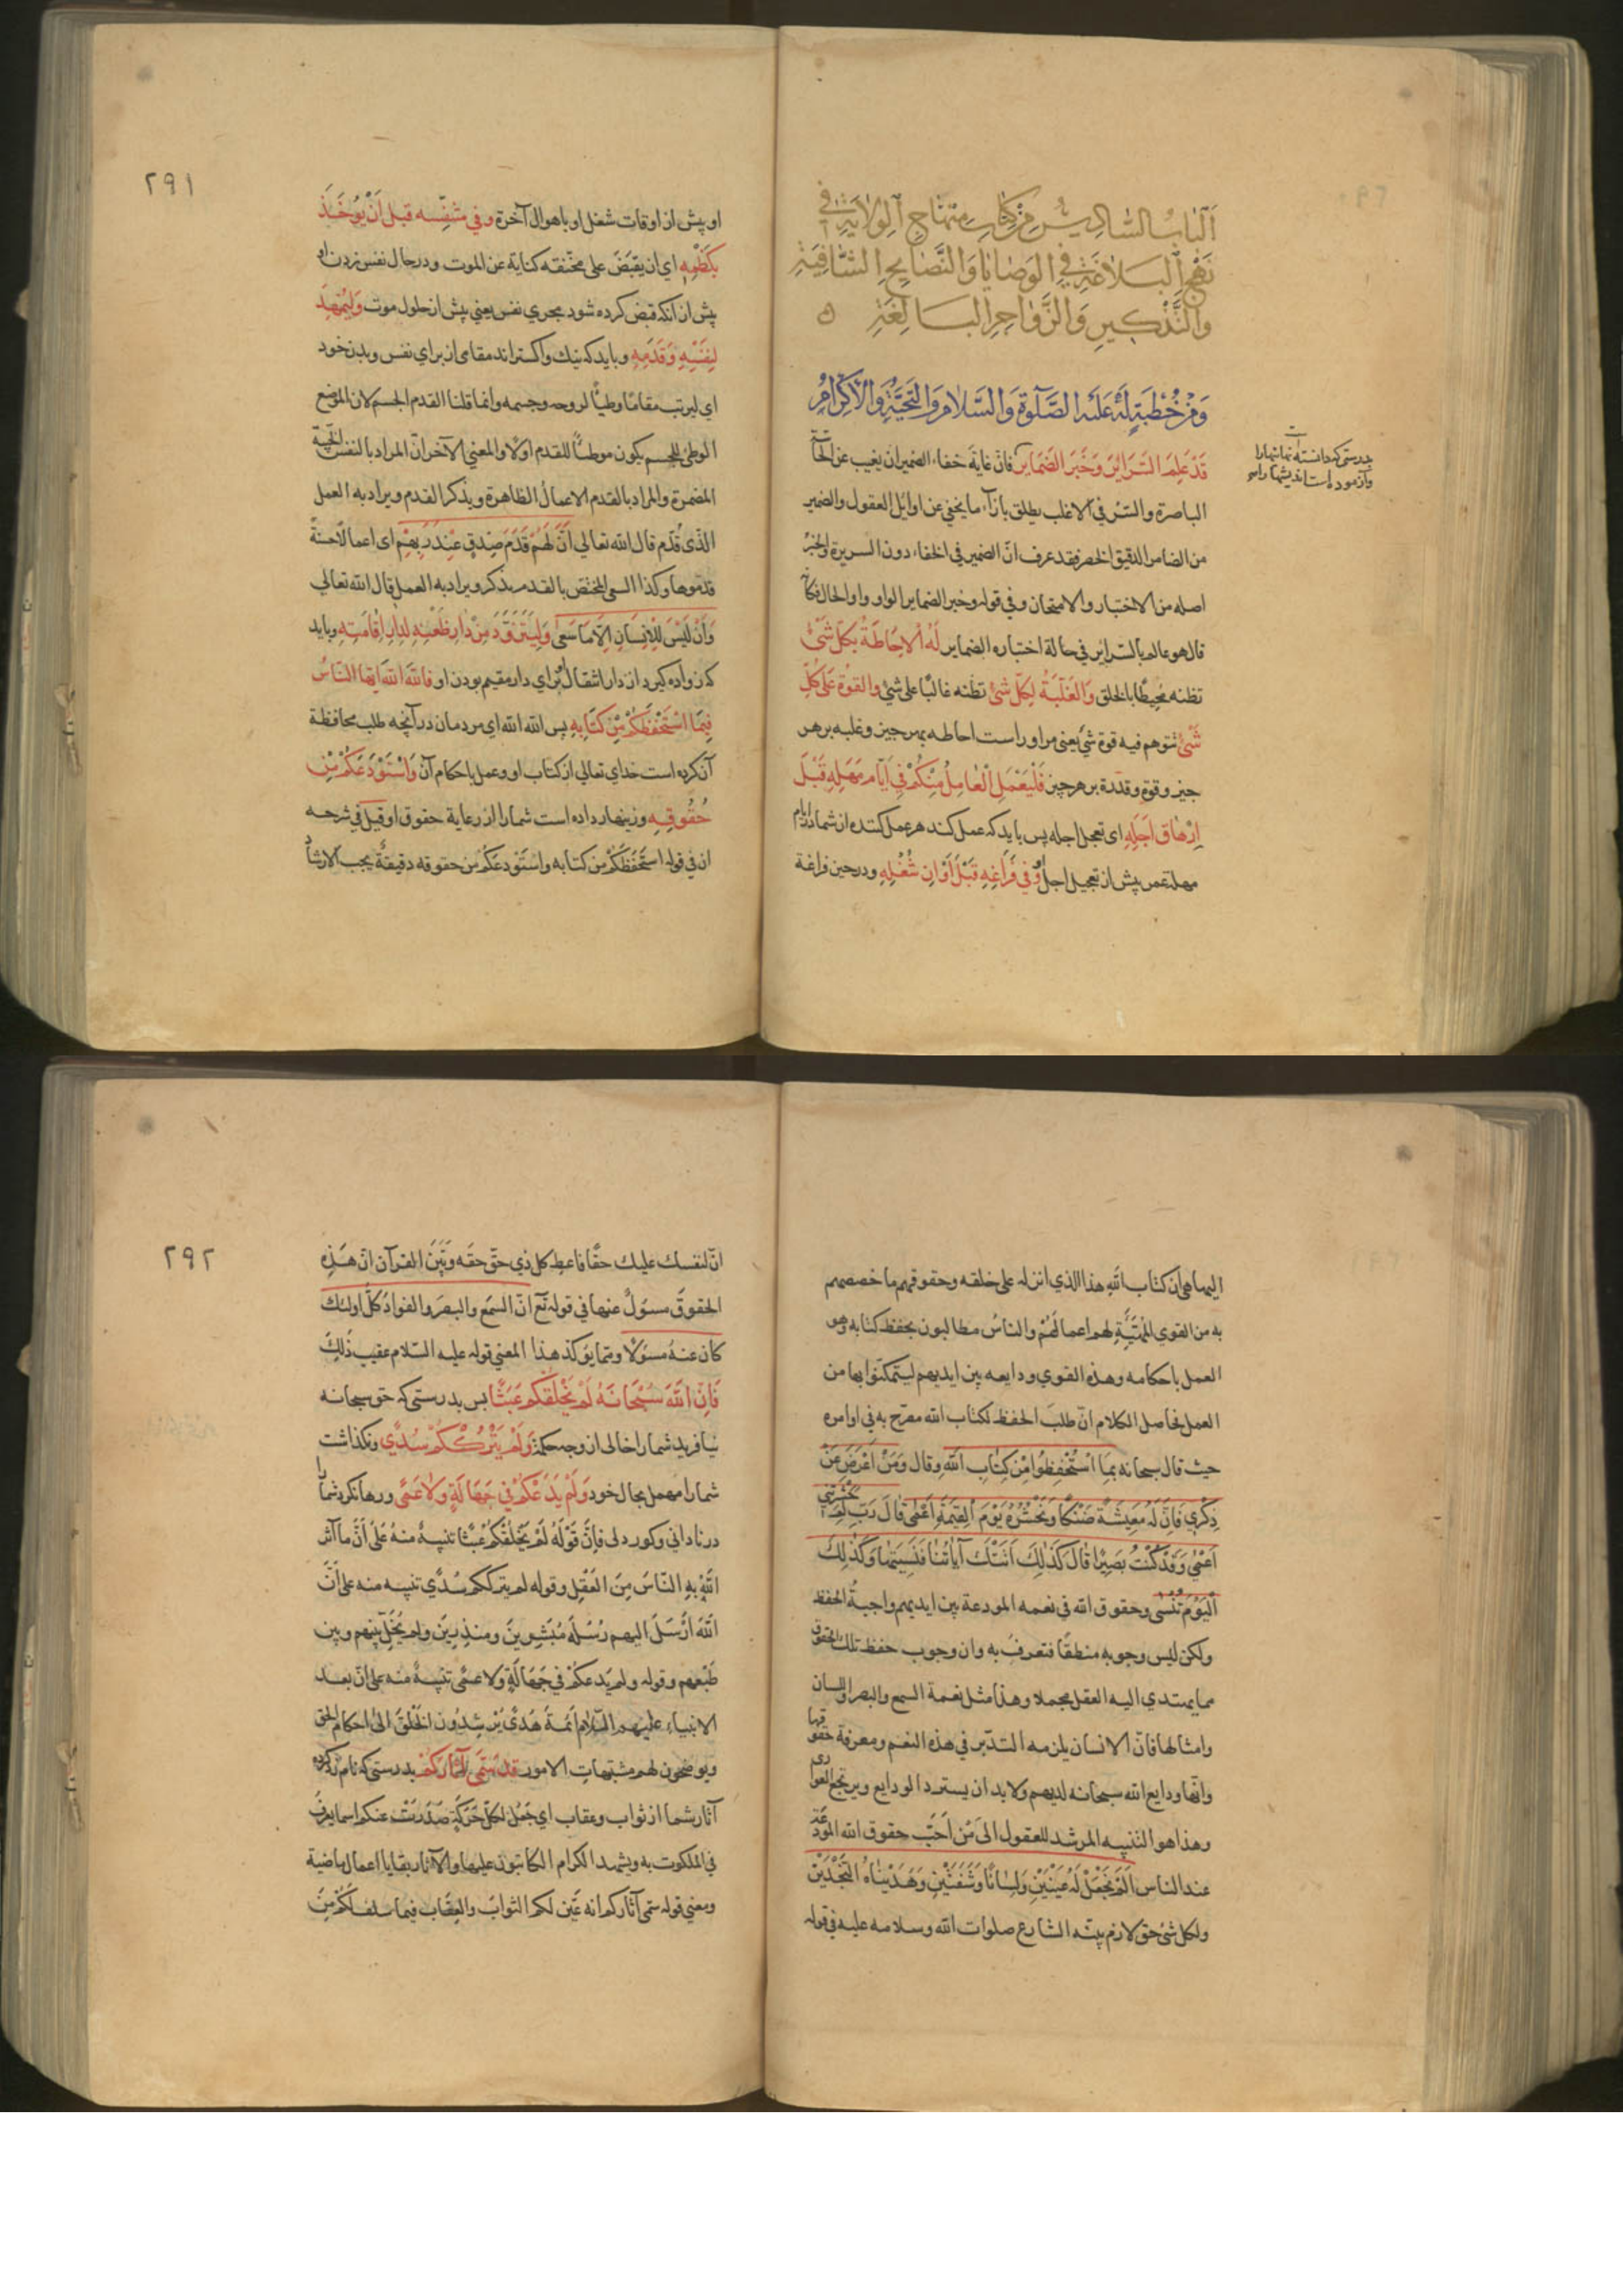 اَلْبَابُ السَّادِسُ مِنْ كِتَابِ مِنْهَاجِ الوِلَايَةِ فِي
نَهْجِ الْبَلَاغَةِ فِي الوَصَايَا وَالنَّصَايِحِ الشَّافِيَةِ
وَالتَّذْكِيرِ وَالزَّوَاجِرِ البَالِغَةِ ه
وَمِنْ خُطْبَةٍ لَهُ عَلَيْهِ الصَّلٰوةُ وَالسَّلَامُ وَالتَّحِيَّةُ وَالْاِكْرَامُ
قَدْ عَلِمَ السَّرَايِرَ وَخَبَرَ الضَّمَايِرَ فان غاية خفاء الضمير ان يغيب عن الحاسّة
بدرستى كه دانسته است نهانها را
وآزموده است انديشها را
الباصرة والستر فى الاغلب يطلق بازاء ما يخفى عن اوايل العقول والضمير
من الضامر الدقيق الخصر فقد عرف انّ الضمير فى الخفاء دون السريرة والخبر
اصله من الاختبار والامتحان وفى قوله وخبر الضماير الواو واو الحال فكانه
قال هو عالم بالسراير فى حالة اختباره الضماير لَهُ الْاِحَاطَةُ بِكُلِّ شَيْءٍ
تظنه مُحيطًا بالخلق وَالْغَلَبَةُ لِكُلِّ شَيْءٍ تظنه غالبًا على شئ والقوة عَلَى كُلِّ
شَيْءٍ تتوهم فيه قوة شئ يعنى مر او راست احاطه بهر چيز و غلبه بر هر
چيز و قوة و قدرة بر هر چيز فَلْيَعْمَلِ الْعَامِلُ مِنْكُمْ فِي اَيَّامِ مَهَلِهِ قَبْلَ
اِرْهَاقِ اَجَلِهِ اى تعجل اجله پس بايد كه عمل كند هر عمل كننده از شما در ايام
مهلة عمر پيش از تعجيل اجل وَفِي فَرَاغِهِ قَبْلَ اَوَانِ شُغْلِهِ ودر حين فراغة
٢٩١
او پيش از اوقات شغل او باهوال آخرة وفي مُتَنَفَّسِهِ قبل اَنْ يُؤْخَذَ
بِكَظْمِهِ اى ان يقبَضَ على مخنّقه كناية عن الموت ودر حال نفس زدن او
پيش از انكه قبض كرده شود مجرى نفس يعنى پيش از حلول موت وَلْيُمَهِّدْ
لِنَفْسِهِ وَقَدَمِهِ وبايد كه نيك وا گستراند مقامى از براى نفس وبدن خود
اى ليرتب مقامًا وطيًا لروحه وجسمه وانما قلنا القدم الجسم لان الموضع
الوطئ للجسم يكون موطئًا للقدم اولًا والمعنى الآخر انّ المراد بالنفس النيّة
المضمرة والمراد بالقدم الاعمالُ الظاهرة ويذكر القدم ويراد به العمل
الذى قُدّم قال الله تعالى اَنَّ لَهُمْ قَدَمَ صِدْقٍ عِنْدَ رَبِّهِمْ اى اعمالًا حسنةً
قدّموها وكذا السعى المختص بالقدم يذكر ويراد به العمل قال الله تعالى
وَاَنْ لَيْسَ لِلْاِنْسَانِ اِلَّا مَا سَعَى وَلْيَتَزَوَّدْ مِنْ دَارِ ظَعْنِهِ لِدَارِ اِقَامَتِهِ وبايد
كه زواده كيرد از دار انتقال او براى دار مقيم بودن او فَاللهَ اللهَ اَيُّهَا النَّاسُ
فِيمَا اسْتَحْفَظَكُمْ مِنْ كِتَابِهِ پس الله الله اى مردمان در آنچه طلب محافظة
آن كرده است خداى تعالى از كتاب او وعمل باحكام آن وَاسْتَوْدَعَكُمْ مِنْ
حُقُوقِهِ وزينهار داده است شما را از رعاية حقوق او قيل فى شرحه
ان فى قوله استحْفَظَكُمْ من كتابه واستودعكم من حقوقه دقيقةٌ يجب الارشاد
اليها هى ان كتاب الله هذا الذى انزله على خلقه وحقوقهم ما خصصهم
به من القوى المهيّئة لهم اعمالَهُمْ والناسُ مطالبون بحفظ كتابه وهو
العمل باحكامه وهذه القوى ودايعه بين ايديهم ليتمكنوا بها من
العمل فحاصل الكلام انّ طلبَ الحفظ لكتاب الله مصرّح به فى اوامره
حيث قال سبحانه بِمَا اسْتُحْفِظُوا مِنْ كِتَابِ اللهِ وقال وَمَنْ اَعْرَضَ عَنْ
ذِكْرِي فَاِنَّ لَهُ مَعِيشَةً ضَنْكًا وَنَحْشُرُهُ يَوْمَ الْقِيٰمَةِ اَعْمٰى قَالَ رَبِّ لِمَ حَشَرْتَنِي
اَعْمٰى وَقَدْ كُنْتُ بَصِيرًا قَالَ كَذٰلِكَ اَتَتْكَ آيَاتُنَا فَنَسِيتَهَا وَكَذٰلِكَ
الْيَوْمَ تُنْسٰى وحقوق الله فى نعمه المودعة بين ايديهم واجبةُ الحفظ
ولكن ليس وجوبه منطقًا فتعرفَ به وان وجوب حفظ تلك الحقوق
مما يهتدى اليه العقل مجملا وهذا مثل نعمة السمع والبصر واللسان
وامثالها فانّ الانسان يلزمه التدبّر فى هذه النعم ومعرفة حقوقها
وانّها ودايع الله سبحانه لديهم ولا بد ان يسترد الودايع ويرتجع العوارى
وهذا هو التنبيه المرشد للعقول الى مَن اَحَبَّ حقوق الله المودعة
عند الناس اَلَمْ نَجْعَلْ لَهُ عَيْنَيْنِ وَلِسَانًا وَشَفَتَيْنِ وَهَدَيْنَاهُ النَّجْدَيْنِ
ولكل شئ حق لازم بيّنه الشارع صلوات الله وسلامه عليه فى قوله
٢٩٢
انّ لنفسك عليك حقًا فاعط كل ذى حقّ حقه وبَيّنَ القرآن ان هَذِهِ
الحقوقَ مسؤلٌ عنها فى قوله تع انّ السمع والبصر والفؤاد كلّ اولئك
كان عنهُ مسؤلا ومما يؤكد هذا المعنى قوله عليه السّلام عقيب ذٰلِكَ
فَاِنّ اللهَ سُبْحَانَهُ لَمْ يَخْلُقْكُمْ عَبَثًا پس بدرستى كه حق سبحانه
نيافريد شما را خالى از وجه حكمة وَلَمْ يَتْرُكْكُمْ سُدًى ونكذاشت
شما را مهمل بحال خود وَلَمْ يَدَعْكُمْ فِي جَهَالَةٍ وَلَا عَمًى ورها نكرد شما را
در نادانى وكور دلى فاِنَّ قَوْلَهُ لَمْ يَخْلُقْكُمْ عَبَثًا تنبيهٌ منهُ عَلَى اَنَّ مَا آثر
اللهُ بِهِ النّاسَ مِنَ العَقْلِ وقوله لم يترككم سُدًى تنبيه منه على انّ
اللهَ اَرْسَلَ اليهم رُسُلَهُ مُبَشِّرِينَ ومنذِرينَ ولم يُخَلِّ بَيْنَهم وبين
طَبْعهم وقوله ولم يَدعكُمْ فى جَهَالَةٍ وَلَا عمًى تنبيهٌ منه على انّ بعد
الانبياء عليهم السّلام اَئمةَ هُدًى يُرْشِدُون الخلقَ الى احكام الحق
ويوضحون لهم مشتبهاتِ الامور قَدْ سَمَّى آثَارَكُمْ بدرستى كه نام زد كرده
آثار شما از ثواب وعقاب اى جَعَلَ لِكلّ حَرَكَةٍ صَدَرَتْ عنكم اسما يعرفُ
فى الملكوت به ويشهد الكرام الكاتبون عليها والآثار بقايا اعمال ماضية
ومعنى قوله سمى آثاركم انه عَيّن لكم الثوابَ والعِقَاب فيما سلف لكُمْ مِنَ